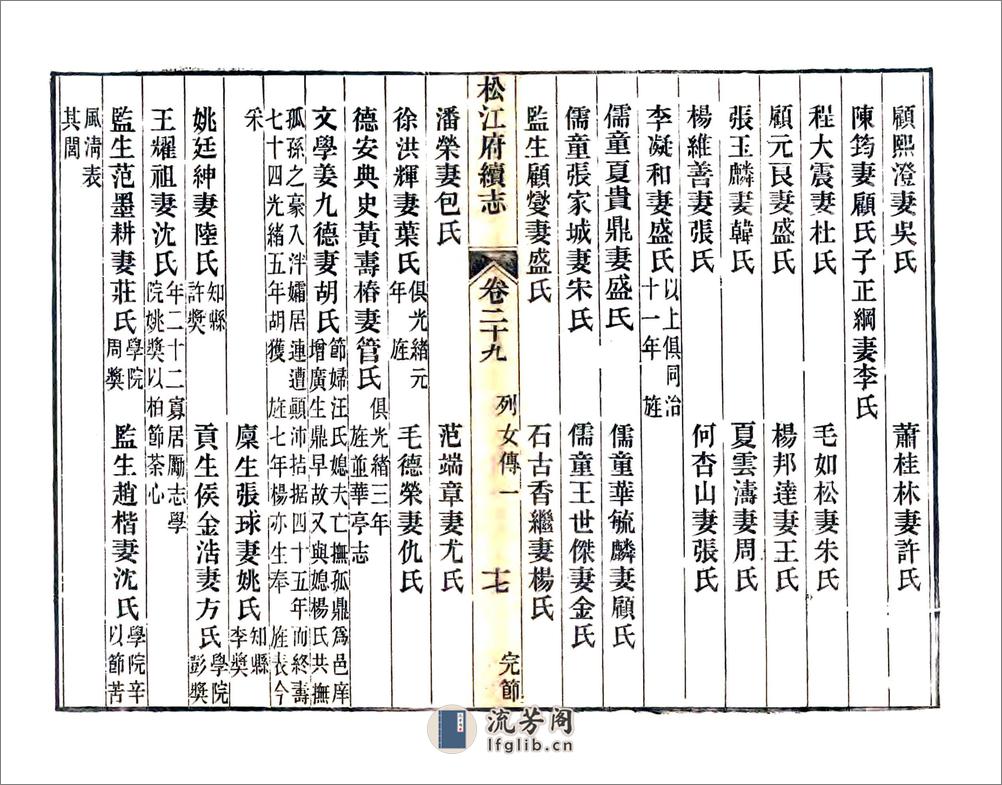 顧熙澄妻吳氏　蕭桂林妻許氏
陳筠妻顧氏子正綱妻李氏
程大震妻杜氏　毛如松妻朱氏
顧元良妻盛氏　楊邦達妻王氏
張玉麟妻韓氏　夏雲濤妻周氏
楊維善妻張氏　何杏山妻張氏
李凝和妻盛氏以上俱同治十一年旌
儒童夏貴鼎妻盛氏　儒童華毓麟妻顧氏
儒童張家城妻宋氏　儒童王世傑妻金氏
監生顧燮妻盛氏　石古香繼妻楊氏
松江府續志　卷二十九　列女傳一　十七　完節
潘榮妻包氏　范端章妻尤氏
徐洪輝妻葉氏俱光緒元年旌　毛德榮妻仇氏
德安典史黃壽椿妻管氏俱光緒三年旌並華亭志
文學姜九德妻胡氏節婦汪氏媳夫亡撫孤鼎爲邑庠增廣生鼎早故又與媳楊氏共撫
孤孫之豪入泮孀居連遭顚沛拮据四十五年而終壽七十四光緒五年胡獲　旌七年楊亦生奉　旌表今
采　廩生張球妻姚氏知縣李獎
姚廷紳妻陸氏知縣許獎　貢生侯金浩妻方氏學院彭獎
王耀祖妻沈氏年二十二寡居勵志學院姚獎以柏節荼心
監生范墨耕妻莊氏學院周獎　監生趙楷妻沈氏學院辛以節苦
風淸表其閭
流芳阁
lfglib.cn